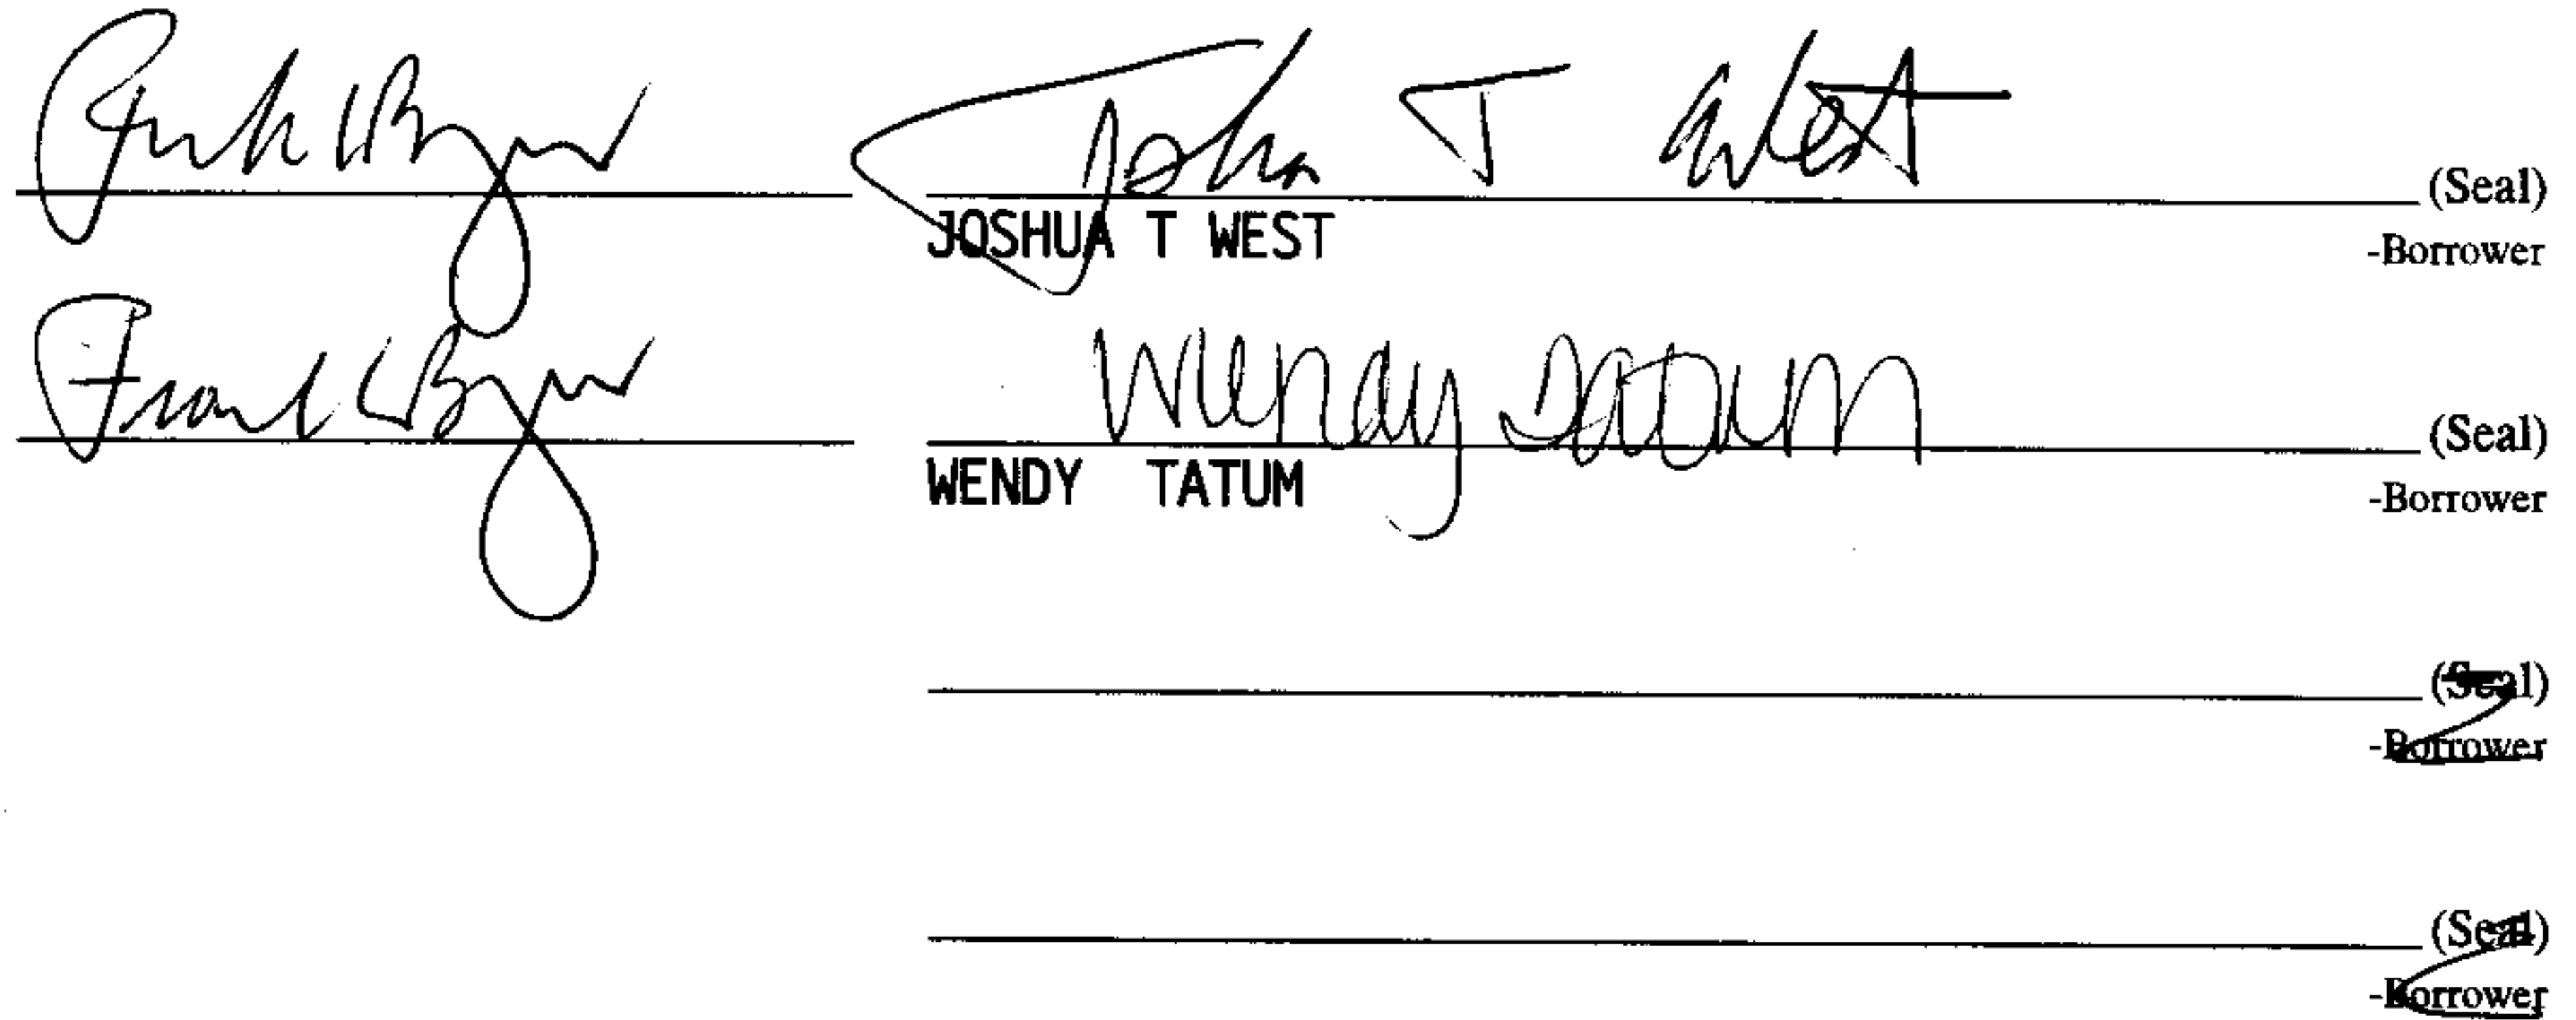 Frank L Byrd John T West (Seal)
JOSHUA T WEST -Borrower
Frank Wendy Tatum (Seal)
WENDY TATUM -Borrower
(Seal)
-Borrower
(Seal)
-Borrower